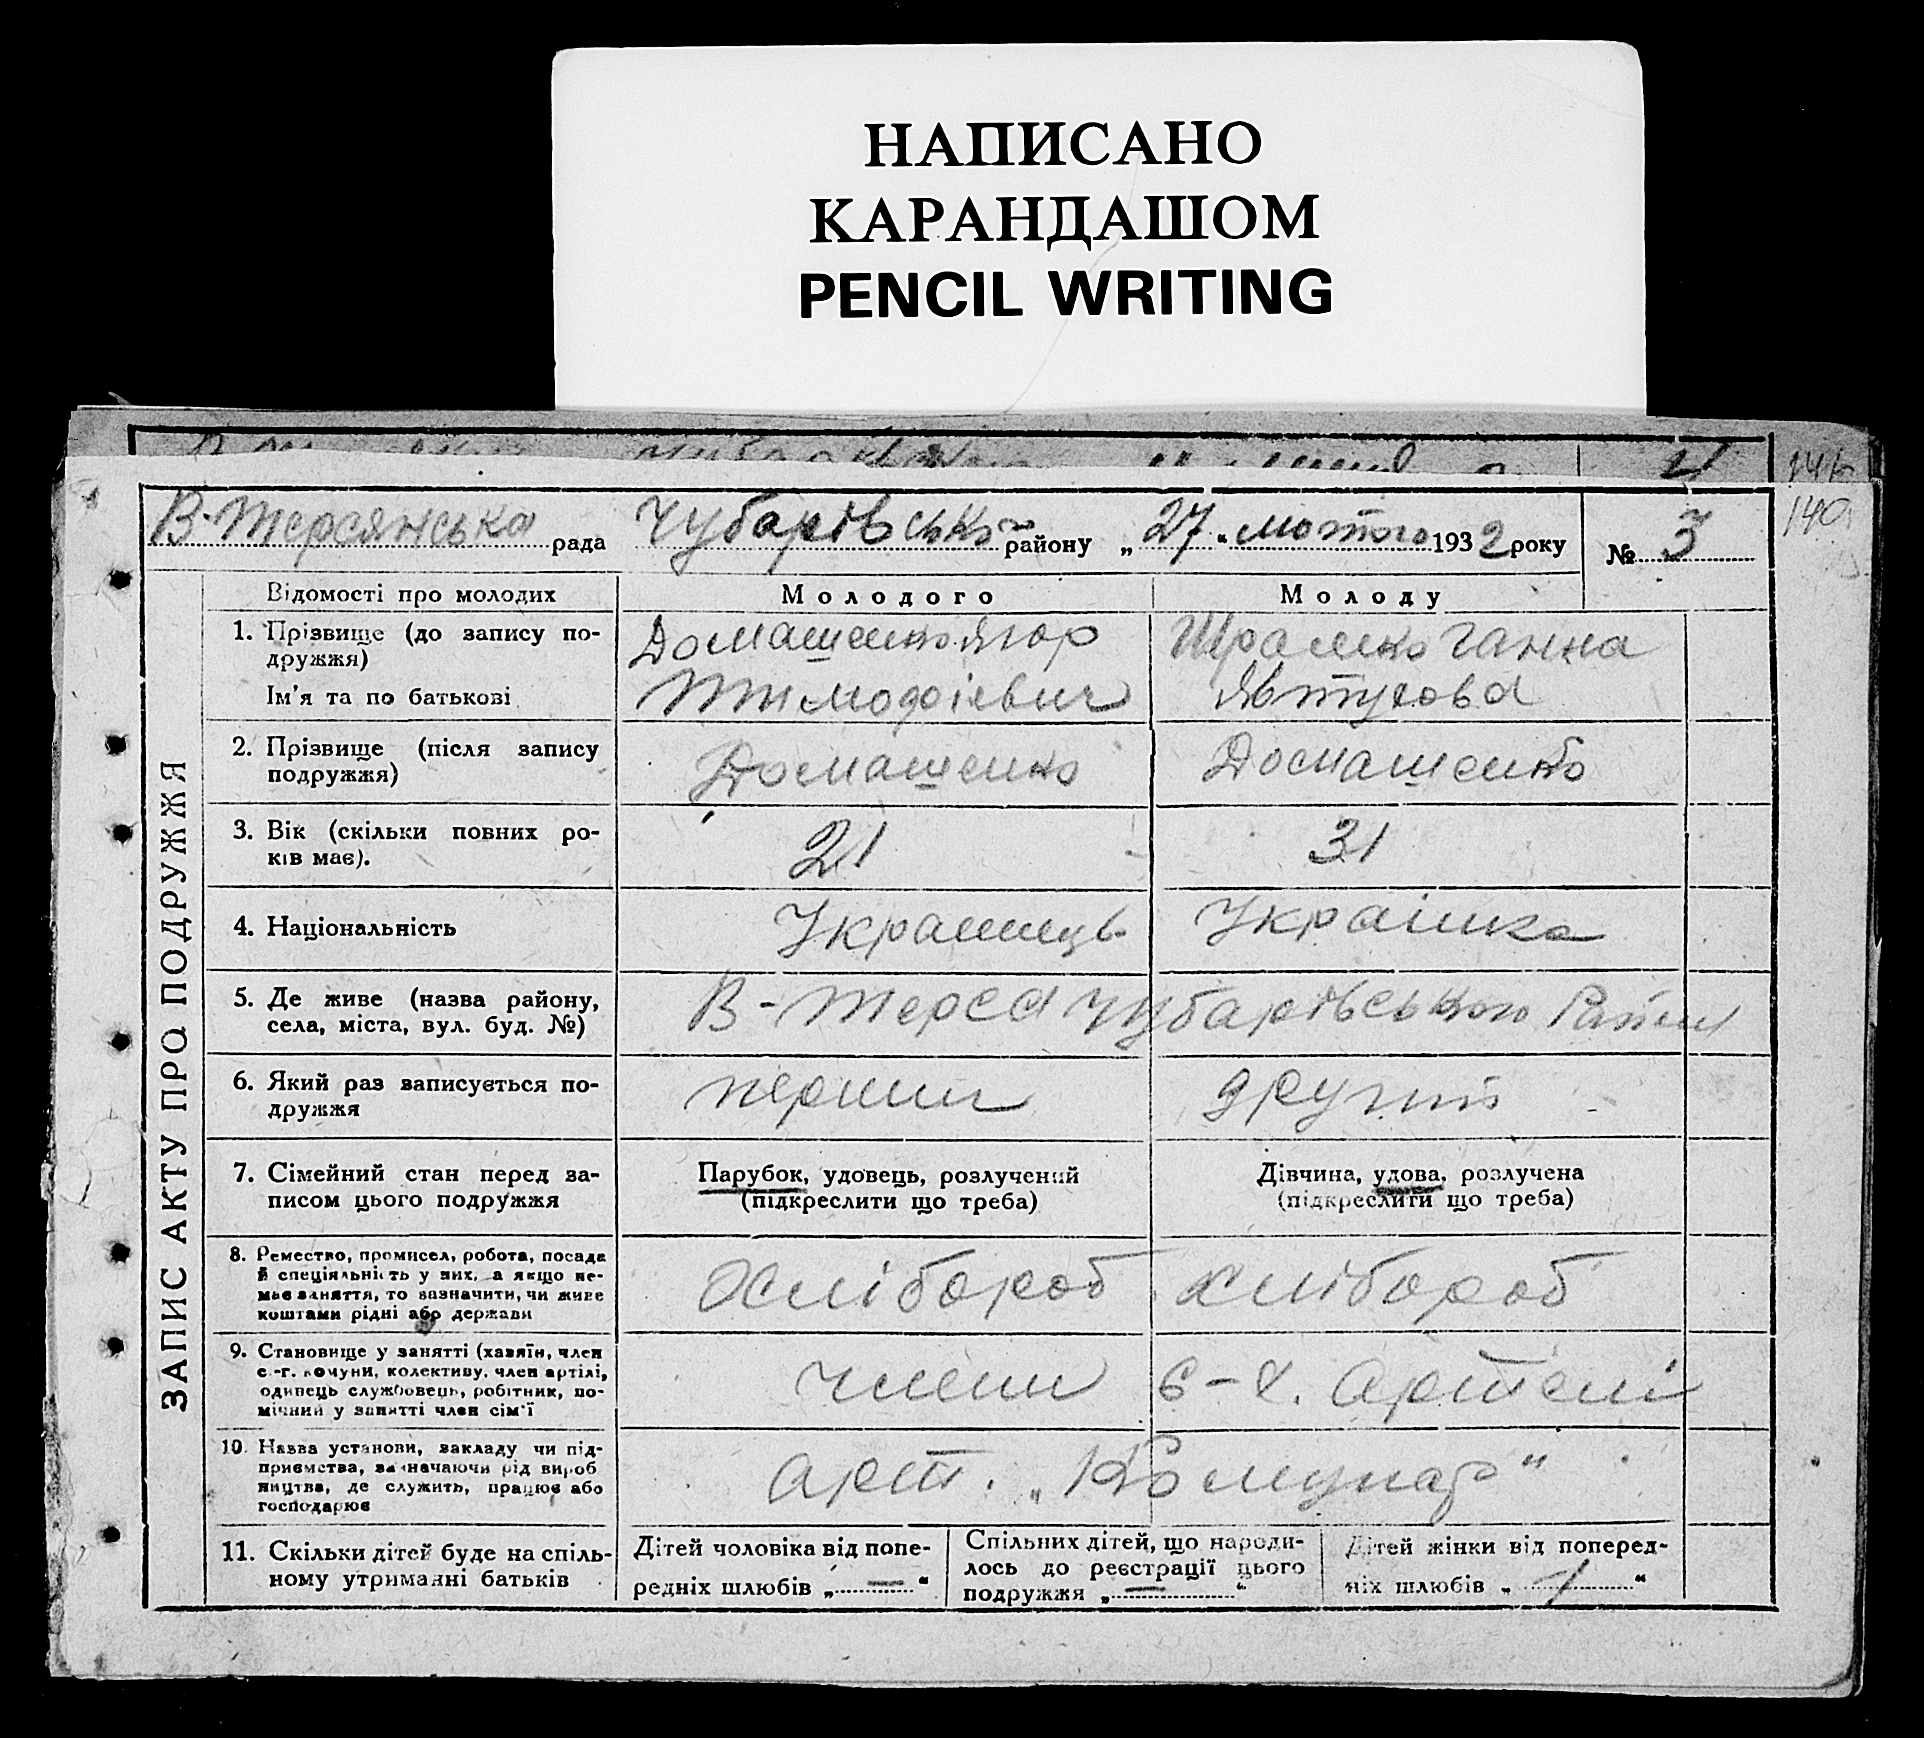 НАПИСАНО
КАРАНДАШОМ
PENCIL WRITING
4 141
140
В-Терсянська рада Чубарівської району „27“ лютого 1932 року № 3
ЗАПИС АКТУ ПРО ПОДРУЖЖЯ
Відомості про молодих Молодого Молоду
1. Прізвище (до запису по- Домашенко Ягор Шрамко Ганна
дружжя)
Ім'я та по батькові Тимофієвич Явтухова
2. Прізвище (після запису Домашенко Домашенко
подружжя)
3. Вік (скільки повних ро- 21 31
ків має).
4. Національність Украинець Украінка
5. Де живе (назва району, В-Терса Чубарівського Району
села, міста, вул. буд. №)
6. Який раз записується по- перший другий
дружжя
7. Сімейний стан перед за- Парубок, удовець, розлучений Дівчина, удова, розлучена
писом цього подружжя (підкреслити що треба) (підкреслити що треба)
8. Ремество, промисел, робота, посада Хлібороб хлібороб
й спеціяльність у них, а якщо не-
має заняття, то зазначити, чи живе
коштами рідні або держави
9. Становище у занятті (хазяїн, член члени с-х. артелі
с.-г. комуни, колективу, член артілі,
одинець службовець, робітник, по-
мічний у занятті член сім'ї
10. Назва установи, закладу чи під- арт. „Комунар“
приємства, зазначаючи рід вироб
ництва, де служить, працює або
господарює
11. Скільки дітей буде на спіль- Дітей чоловіка від попе- Спільних дітей, що народи- Дітей жінки від поперед-
ному утриманні батьків редніх шлюбів „—“ лось до реєстрації цього ніх шлюбів „1“
подружжя „—“